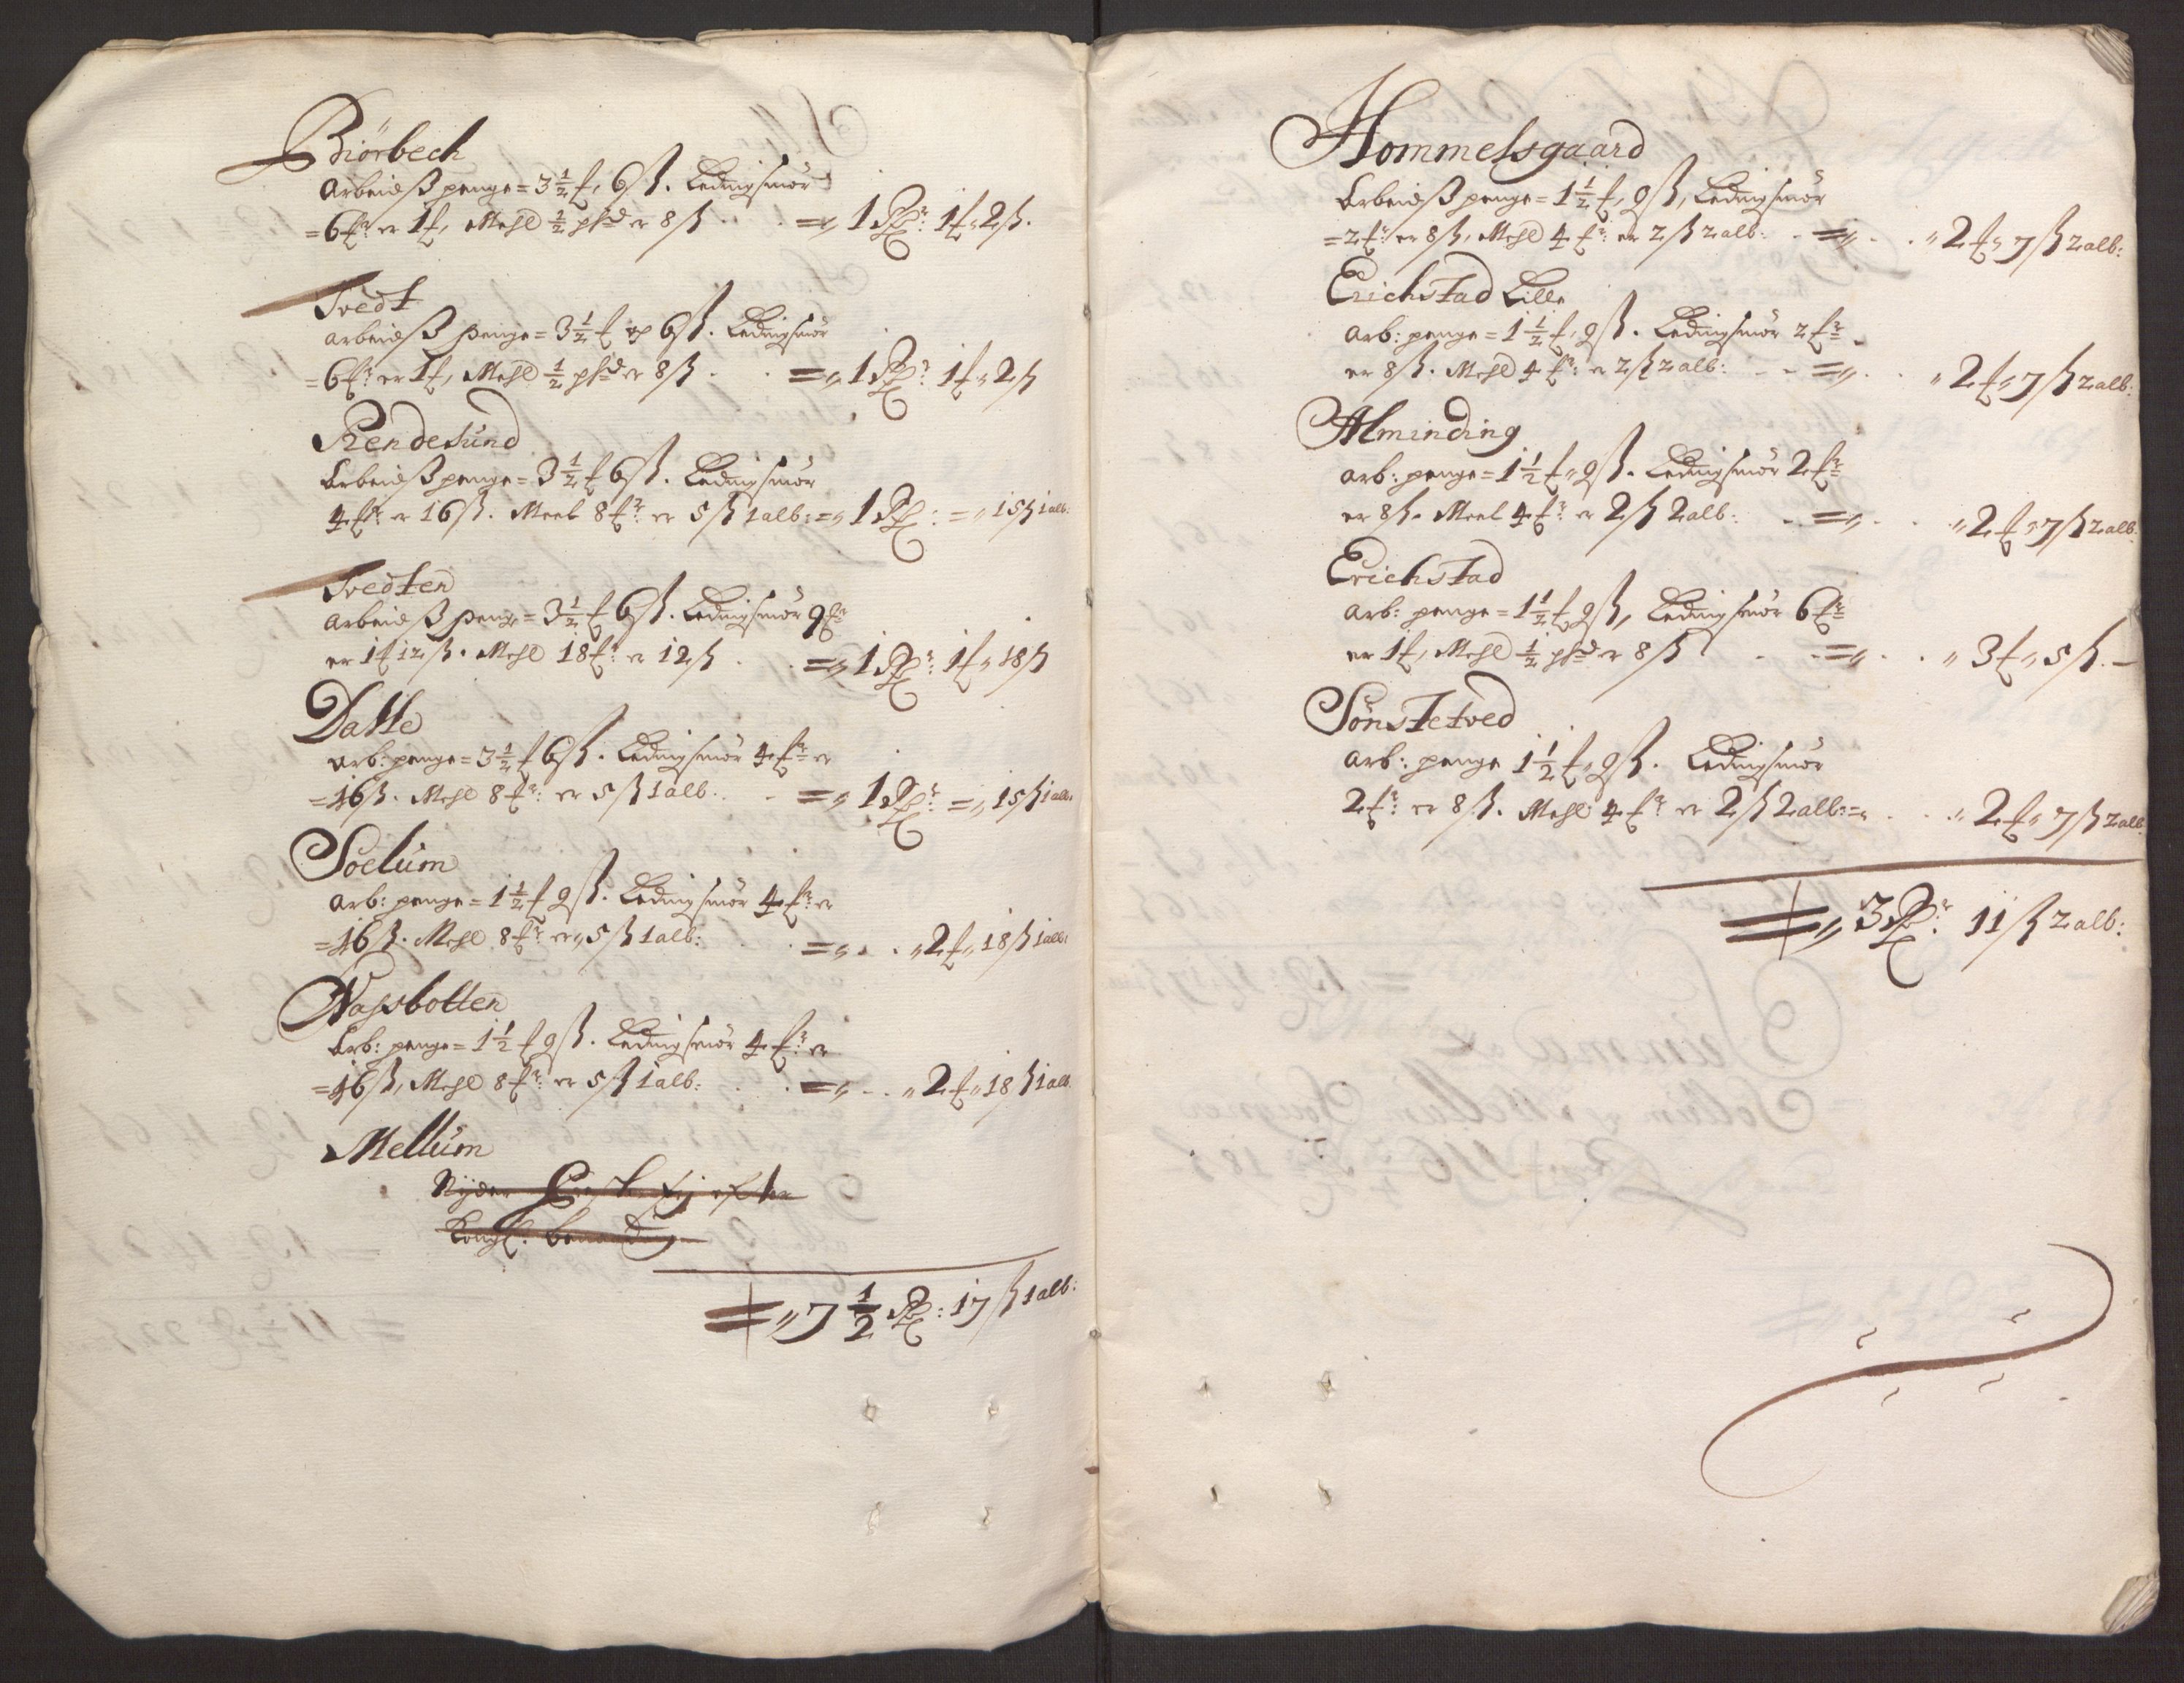 Biörbech
Arbeidsß penge = 3 1/2 £, 6 ß. Ledingsmör
= 6 £r er 1 £, Mehl 1/2 phd er 8 ß . . = 1 Rdr: 1 £ 2 ß.
Tvedt
arbeidß penge = 3 1/2 £ og 6 ß. Ledingsmör
= 6 £r er 1 £, Mehl 1/2 phd er 8 ß . . = 1 Rdr: 1 £ 2 ß
Rendesund
Arbeidß penge = 3 1/2 £ 6 ß. Ledingsmör
4 £r er 16 ß. Meel 8 £r: er 5 ß 1 alb: = 1 Rd: = 15 ß 1 alb:
Tvedten
Arbeidß penge = 3 1/2 £ 6 ß. Ledingsmör 9 £r
er 1 £ 12 ß. Mehl 18 £r er 12 ß . . = 1 Rdr: 1 £ 18 ß
Datte
Arb: penge = 3 1/2 £ 6 ß. Ledingsmör 4 £r er
= 16 ß. Mehl 8 £r: er 5 ß 1 alb: . = 1 Rdr: = 15 ß 1 alb:
Soelum
Arb: penge = 1 1/2 £ 9 ß. Ledingsmör 4 £r: er
= 16 ß. Mehl 8 £r er 5 ß 1 alb: . = . . 2 £ 18 ß 1 alb:
Nassbotten
Arb: penge = 1 1/2 £ 9 ß. Ledingsmör 4 £r: er
= 16 ß, Mehl 8 £r: er 5 ß 1 alb: . . = . . 2 £ 18 ß 1 alb:
Mellum
Nyder efter
Kongl: benaading
= 7 1/2 Rd: 17 ß 1 alb:
Hommelsgaard
Arbeidß penge = 1 1/2 £, 9 ß, Ledingsmör
= 2 £r: er 8 ß, Mehl 4 £r: er 2 ß 2 alb: . = . . 2 £ 7 ß 2 alb:
Erichstad Lille
Arb: penge = 1 1/2 £, 9 ß. Ledingsmör 2 £r
er 8 ß. Mehl 4 £r: er 2 ß 2 alb: . . = . . 2 £ 7 ß 2 alb:
Alminding
Arb: penge = 1 1/2 £ 9 ß. Ledingsmör 2 £r
er 8 ß. Meel 4 £r: er 2 ß 2 alb: . = . . 2 £ 7 ß 2 alb:
Erichstad
Arb: penge = 1 1/2 £ 9 ß, Ledingsmör 6 £r
er 1 £, Mehl 1/2 phd er 8 ß . . = . . 3 £ 5 ß. —
Sönstetved
Arb: penge 1 1/2 £, 9 ß. Ledingsmör
2 £r: er 8 ß. Mehl 4 £r er 2 ß 2 alb: = . . 2 £ 7 ß 2 alb
= 3 Rdr: 11 ß 2 alb: